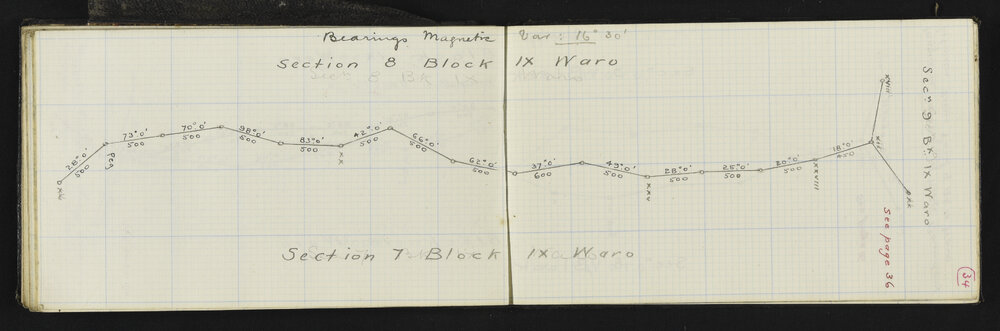 Bearings Magnetic Var: 16° 30'
Section 8 Block IX Waro
XVIII
Sec:n 9 Bk: IX Waro
28°0' 500
Peg
73°0' 500
70°0' 500
98°0' 500
83°0' 500
XX
42°0' 500
66°0' 500
62°0' 500
37°0' 600
49°0' 500
XXV
28°0' 500
25°0' 500
20°0' 500
XXVIII
18°0' 450
XII
XX
See page 36
Section 7 Block IX Waro
34